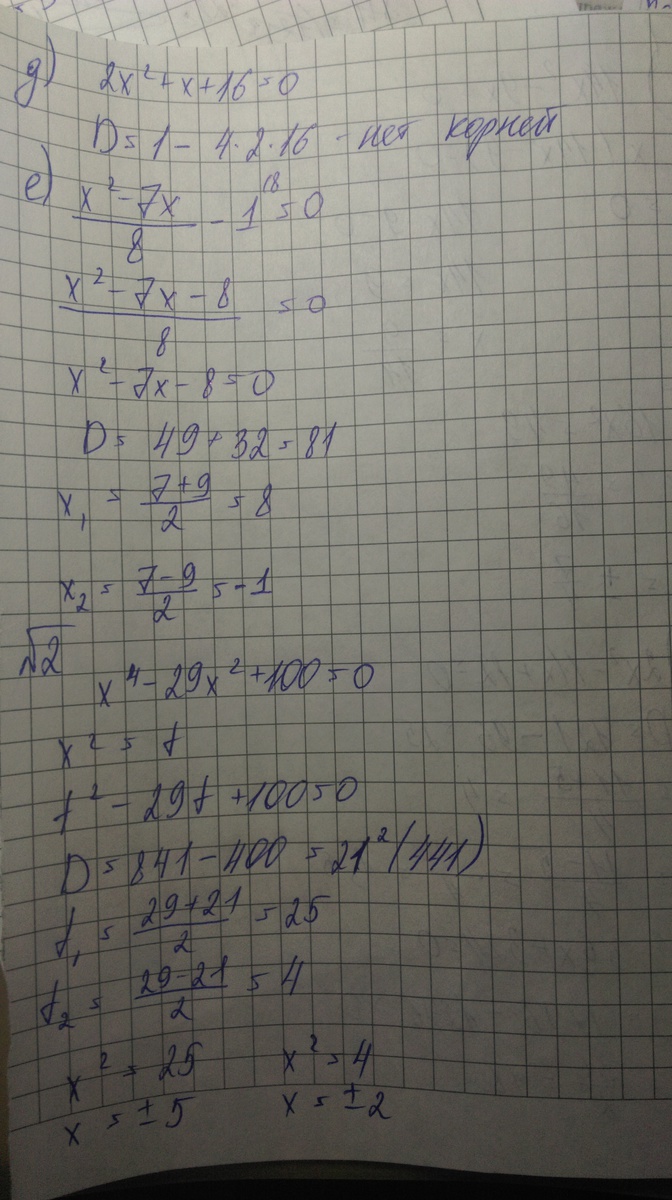 д) 2x² + x + 16 = 0
D = 1 - 4·2·16 - нет корней
е) (x² - 7x)/8 - 1^(8 = 0
(x² - 7x - 8)/8 = 0
x² - 7x - 8 = 0
D = 49 + 32 = 81
x₁ = (7+9)/2 = 8
x₂ = (7-9)/2 = -1
√2
x⁴ - 29x² + 100 = 0
x² = t
t² - 29t + 100 = 0
D = 841 - 400 = 21² (441)
t₁ = (29+21)/2 = 25
t₂ = (29-21)/2 = 4
x² = 25 x² = 4
x = ±5 x = ±2